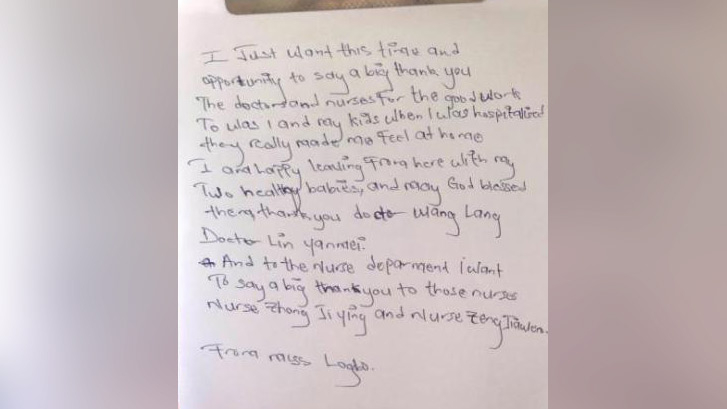 I Just want this time and
opportunity to say a big thank you
The doctors and nurses for the good work
To was I and my kids when I was hospitalised
they really made me feel at home
I am happy leaving from here with my
Two healthy babies, and may God blessed
them, thank you docto Wang Lang
Docto Lin yanmei.
And to the Nurse deparment i want
To say a big thank you to those nurses
Nurse Zhong Ji ying and Nurse Zeng Jiawen.
From miss Logbo.